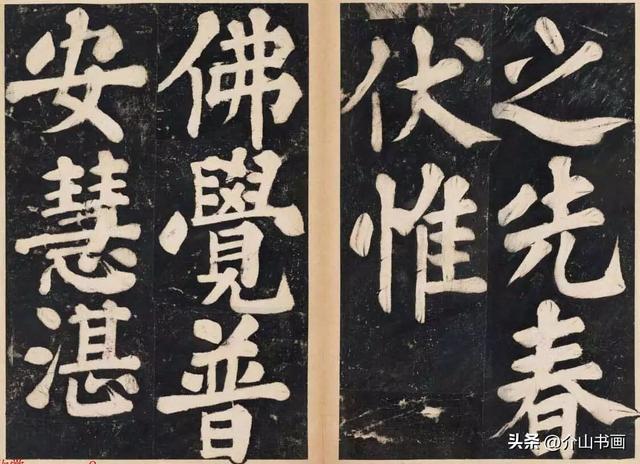 之先春
伏惟
佛覺普
安慧湛
头条 @介山书画